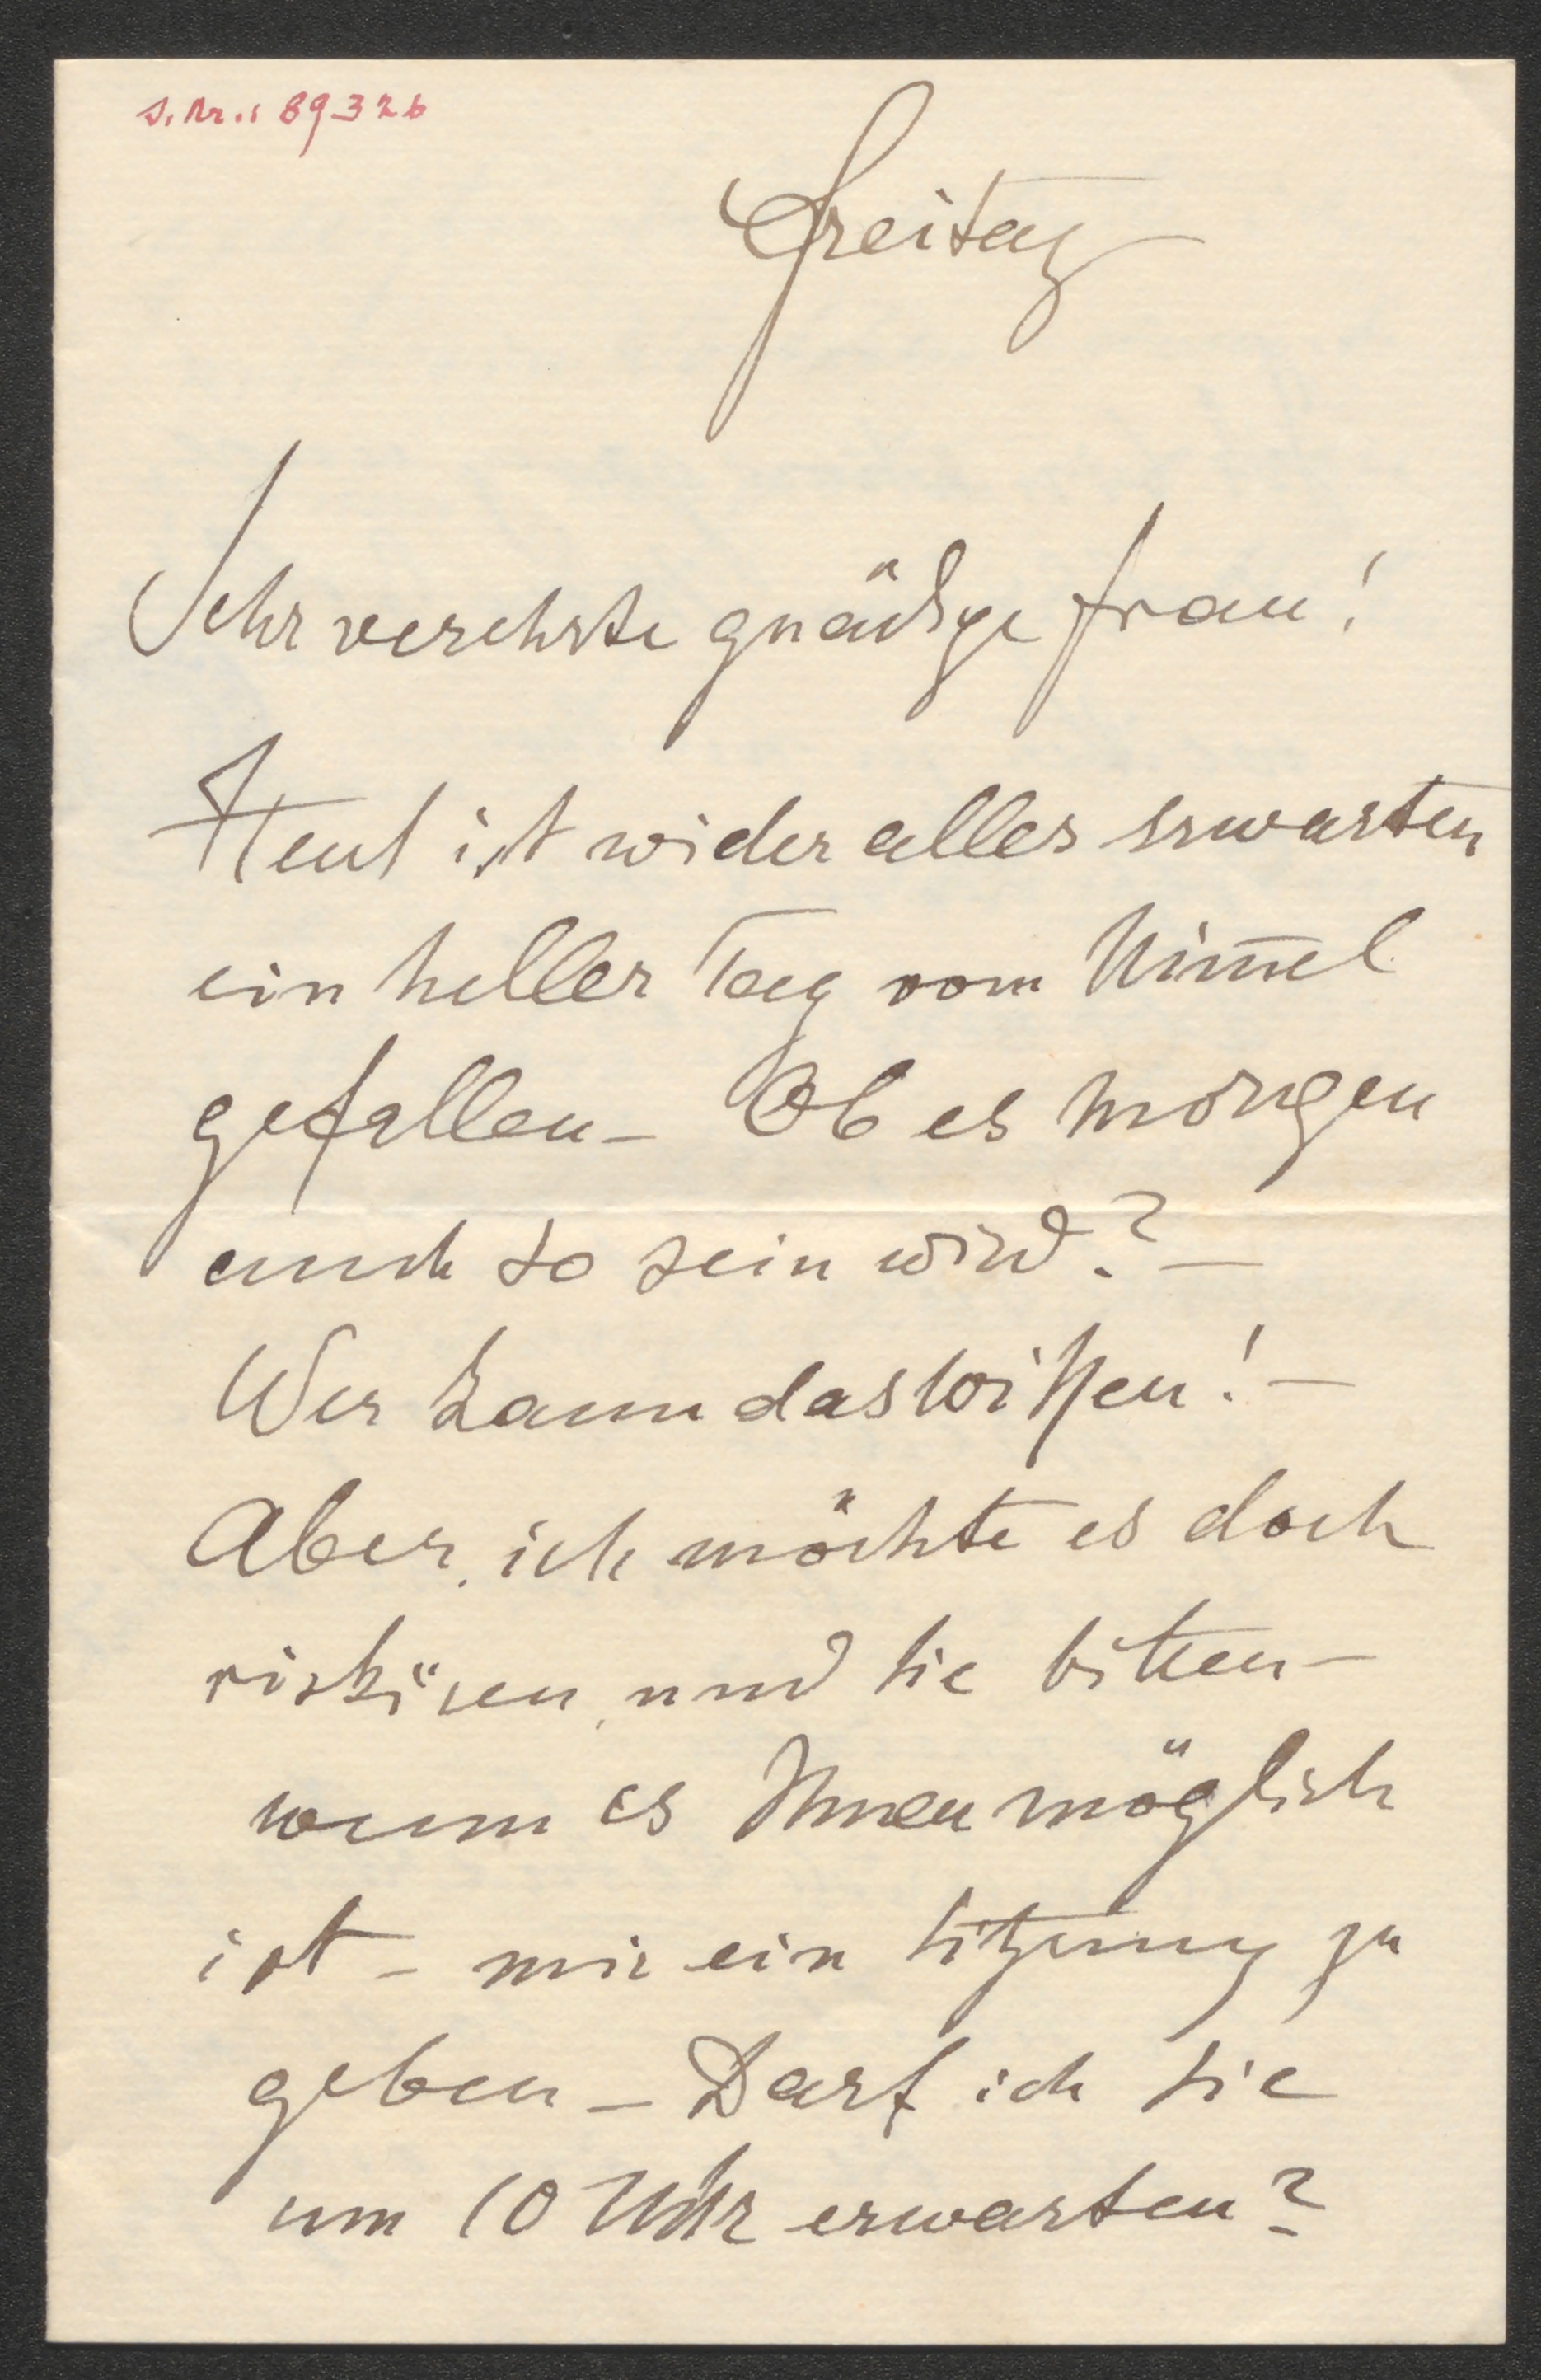 J. Nr.: 89326
Freitag
Sehr verehrte gnädige Frau!
Heut ist wider alles erwarten
ein heller Tag vom Him̅el
gefallen – Ob es morgen
auch so sein wird? –
Wer kann das wissen! –
Aber, ich möchte es doch
riskiren, und Sie bitten –
wenn es Ihnen möglich
ist – mir ein Sitzung zu
geben – Darf ich Sie
um 10 Uhr erwarten?